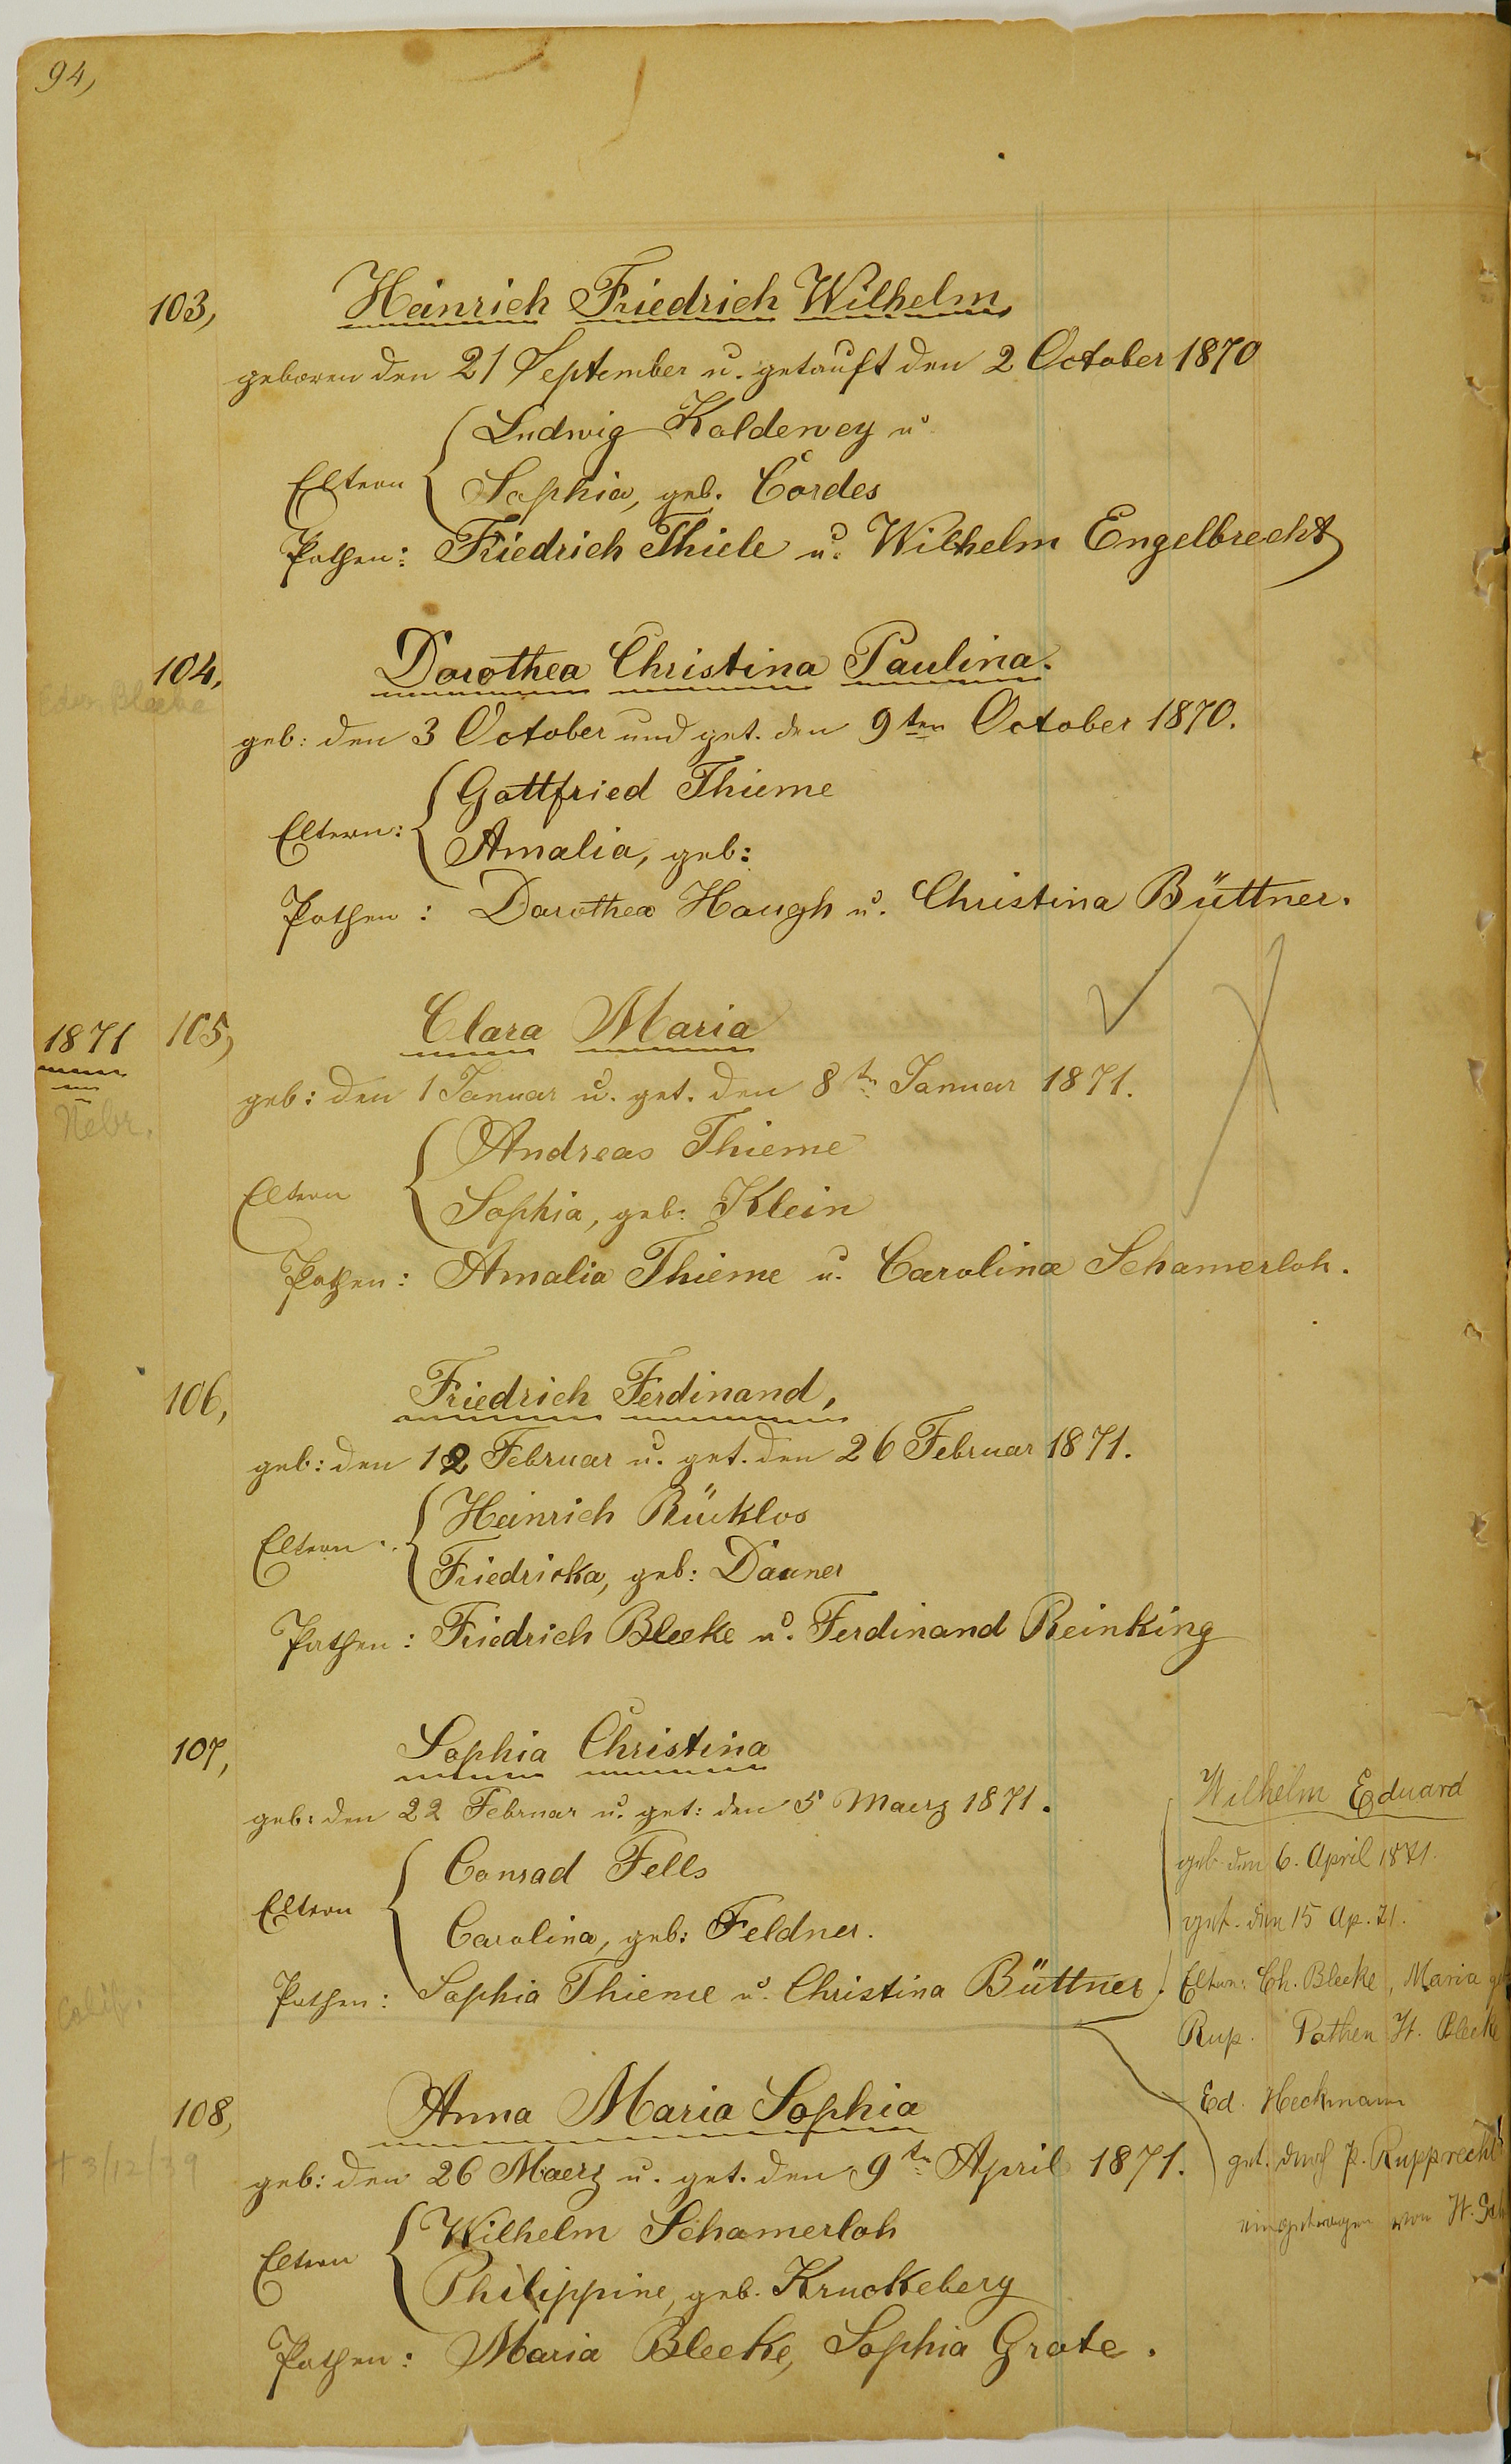 94,
103,
Heinrich Friedrich Wilhelm,
geboren den 21 September u. getauft den 2 October 1870
Ludwig Koldewey u.
Eltern
Sophia, geb. Cordes
Pathen: Friedrich Thiele u. Wilhelm Engelbrecht
104,
Dorothea Christina Paulina.
Edw. Bleeke
geb: den 3 October und get. den 9ten October 1870.
Gottfried Thieme
Eltern:
Amalia, geb:
Pathen: Dorothea Haugh u. Christina Büttner.
1871
105,
Clara Maria
geb: den 1 Januar u. get. den 8tn Januar 1871.
Nebr.
Andreas Thieme
Eltern
Sophia, geb: Klein
Pathen: Amalia Thieme u. Carolina Schamerloh.
106,
Friedrich Ferdinand,
geb: den 12 Februar u. get. den 26 Februar 1871.
Heinrich Bücklos
Eltern:
Friedricka, geb: Dauner
Pathen: Friedrich Bleeke u. Ferdinand Reinking
107,
Sophia Christina
geb: den 22 Februar u. get: den 5 Maerz 1871.
Conrad Fells
Eltern
Carolina, geb: Feldner.
Pathen: Sophia Thieme u. Christina Büttner.
Calif.
Wilhelm Eduard
geb den 6. April 1871.
get. den 15 Ap. 71.
Eltern: Ch. Bleeke, Maria
Rup. Pathen H. Bleeke
Ed. Heckmann
get. durch P. Rupprecht
eingetragen von H.
108,
Anna Maria Sophia
† 3/12/39
geb: den 26 Maerz u. get. den 9tn April 1871.
Wilhelm Schamerloh
Eltern
Philippine, geb. Kruckeberg
Pathen: Maria Bleeke, Sophia Grote.